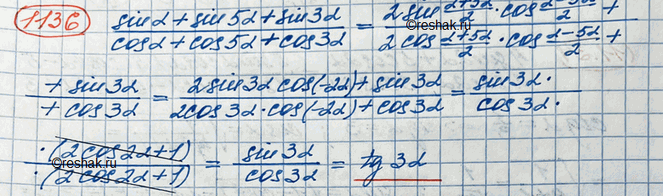 1136 (sinα + sin5α + sin3α)/(cosα + cos5α + cos3α) = (2 sin (α+5α)/2 · cos (α-5α)/2 +)/(2 cos (α+5α)/2 · cos (α-5α)/2 +)
(+ sin3α)/(+ cos3α) = (2 sin3α cos(-2α) + sin3α)/(2cos3α · cos(-2α) + cos3α) = (sin3α ·)/(cos3α ·)
(· (2cos2α+1))/(· (2cos2α+1)) = (sin3α)/(cos3α) = tg 3α
©reshak.ru
©reshak.ru